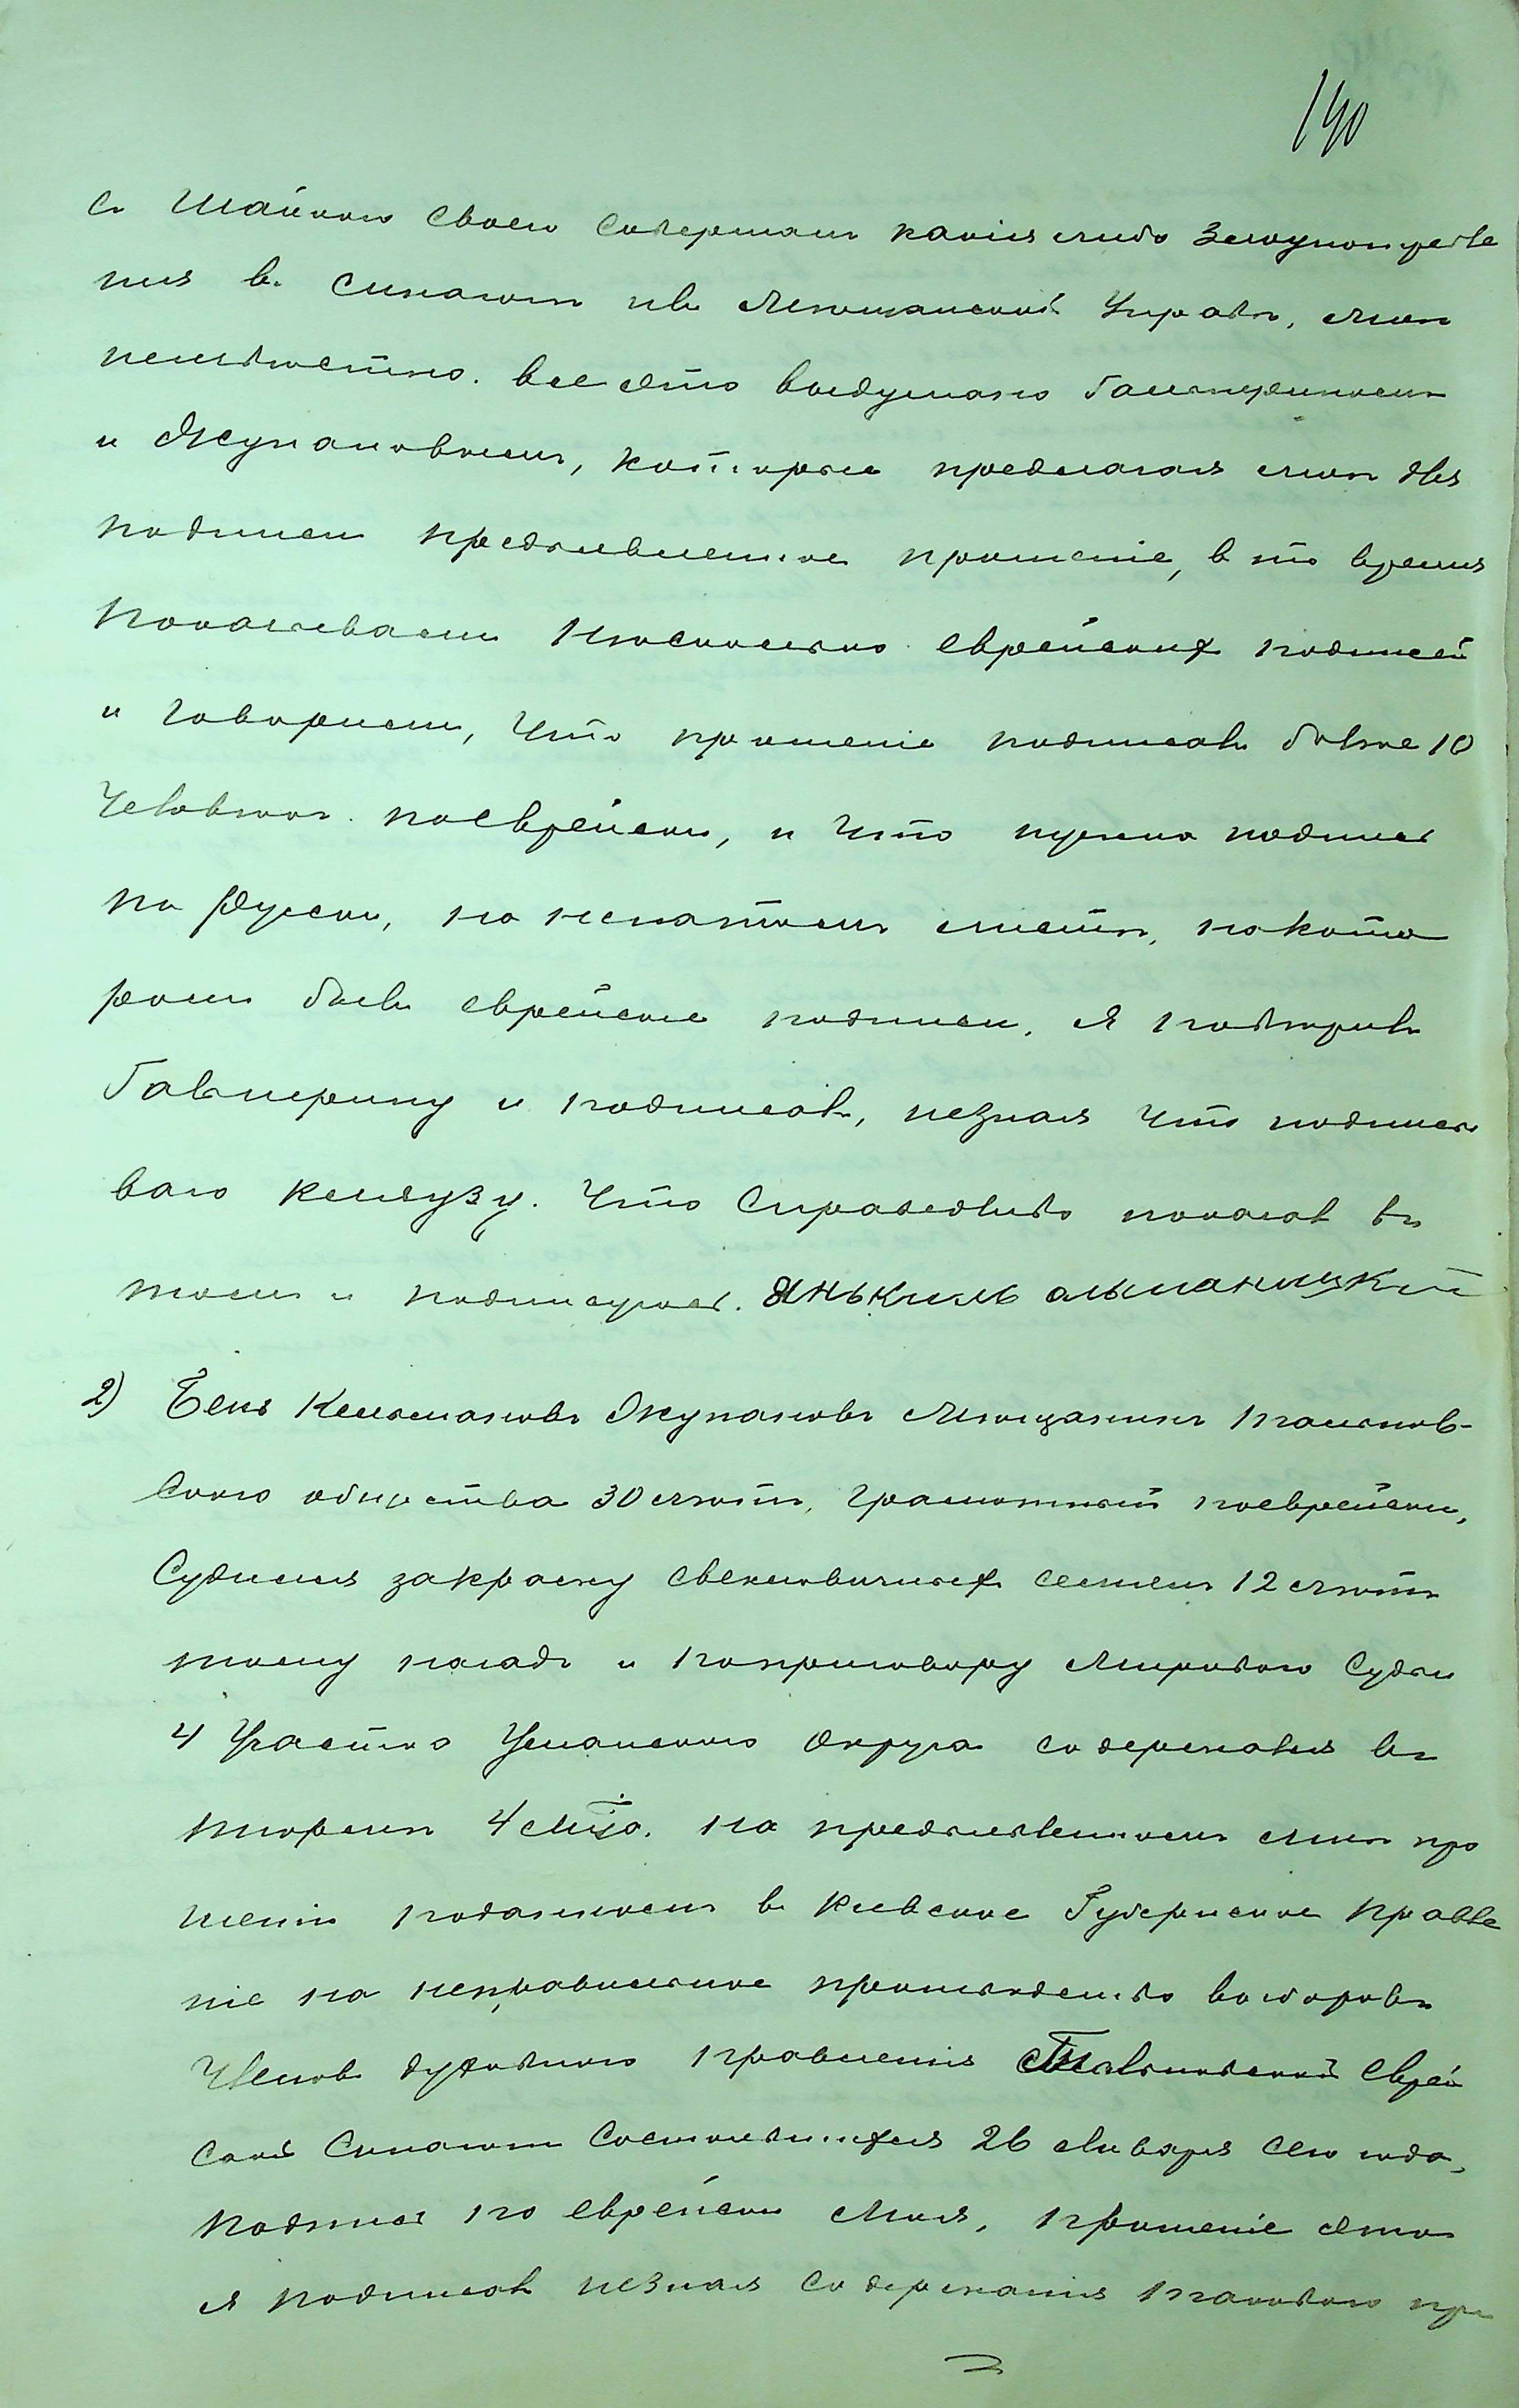 190
съ Шайкою своею совершать какія либо Злоупотребле
ния въ Синагогѣ ивъ Мѣщанской Управѣ, мнѣ
неизвѣстно. все это выдумано Гальперинымъ
и Жупановымъ, которые предлагая мнѣ для
подписи предъявленное прошеніе, в то время
показывали Нѣсколько еврейских подписей
и Говорили, Что прошеніе подписалъ болѣе 10
Человѣкъ поеврейски, и Что нужна подпись
по Руски, но не на томъ листѣ, накото
ромъ былъ еврейские подписи. Я повѣрилъ
Гальперину и подписалъ, незная Что подписы
ваю кляузу. Что Справедливо показалъ въ
томъ и подписуюсь. Янькиль альманицкий
2) Бень Кельмановъ Жупановъ Мѣщанинъ тальнов-
скаго общества 30 лѣтъ, Грамотный поеврейски,
Судился закражу свекловичныхъ семянъ 12 лѣтъ
тому назадъ и поприговору Мироваго Судьи
4 Участка Уманскаго Округа содержался въ
тюрьмѣ 4 мца. на предъявленномъ мнѣ про
шеніи поданномъ въ Киевское Губернское Правле
ніе на неправильное производство выборовъ
Членовъ духовнаго правленія Тальновской Еврей
ской Синагоги Состоявшихся 26 Января сего года,
Подпись по еврейски Моя, прошеніе это
я подписалъ незная Содержания таковаго пр